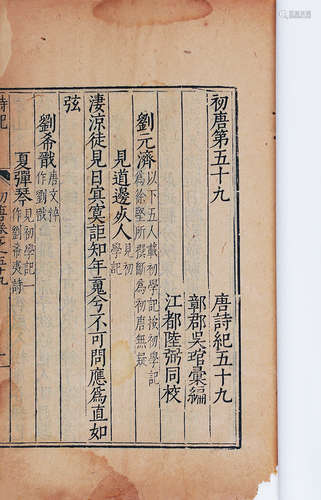 初唐第五十九
唐詩紀五十九
鄣郡吳琯彙編
江都陸弼同校
劉元濟以下五人載初學記按初學記
為徐堅所撰斷為初唐無疑
見道邊死人見初
學記
淒涼徒見日冥寞詎知年䰟兮不可問應爲直如
弦
劉希戬唐文粹
作劉戬
夏彈琴見初學記一
作劉希夷詩
詩紀
初唐卷之五十九
一